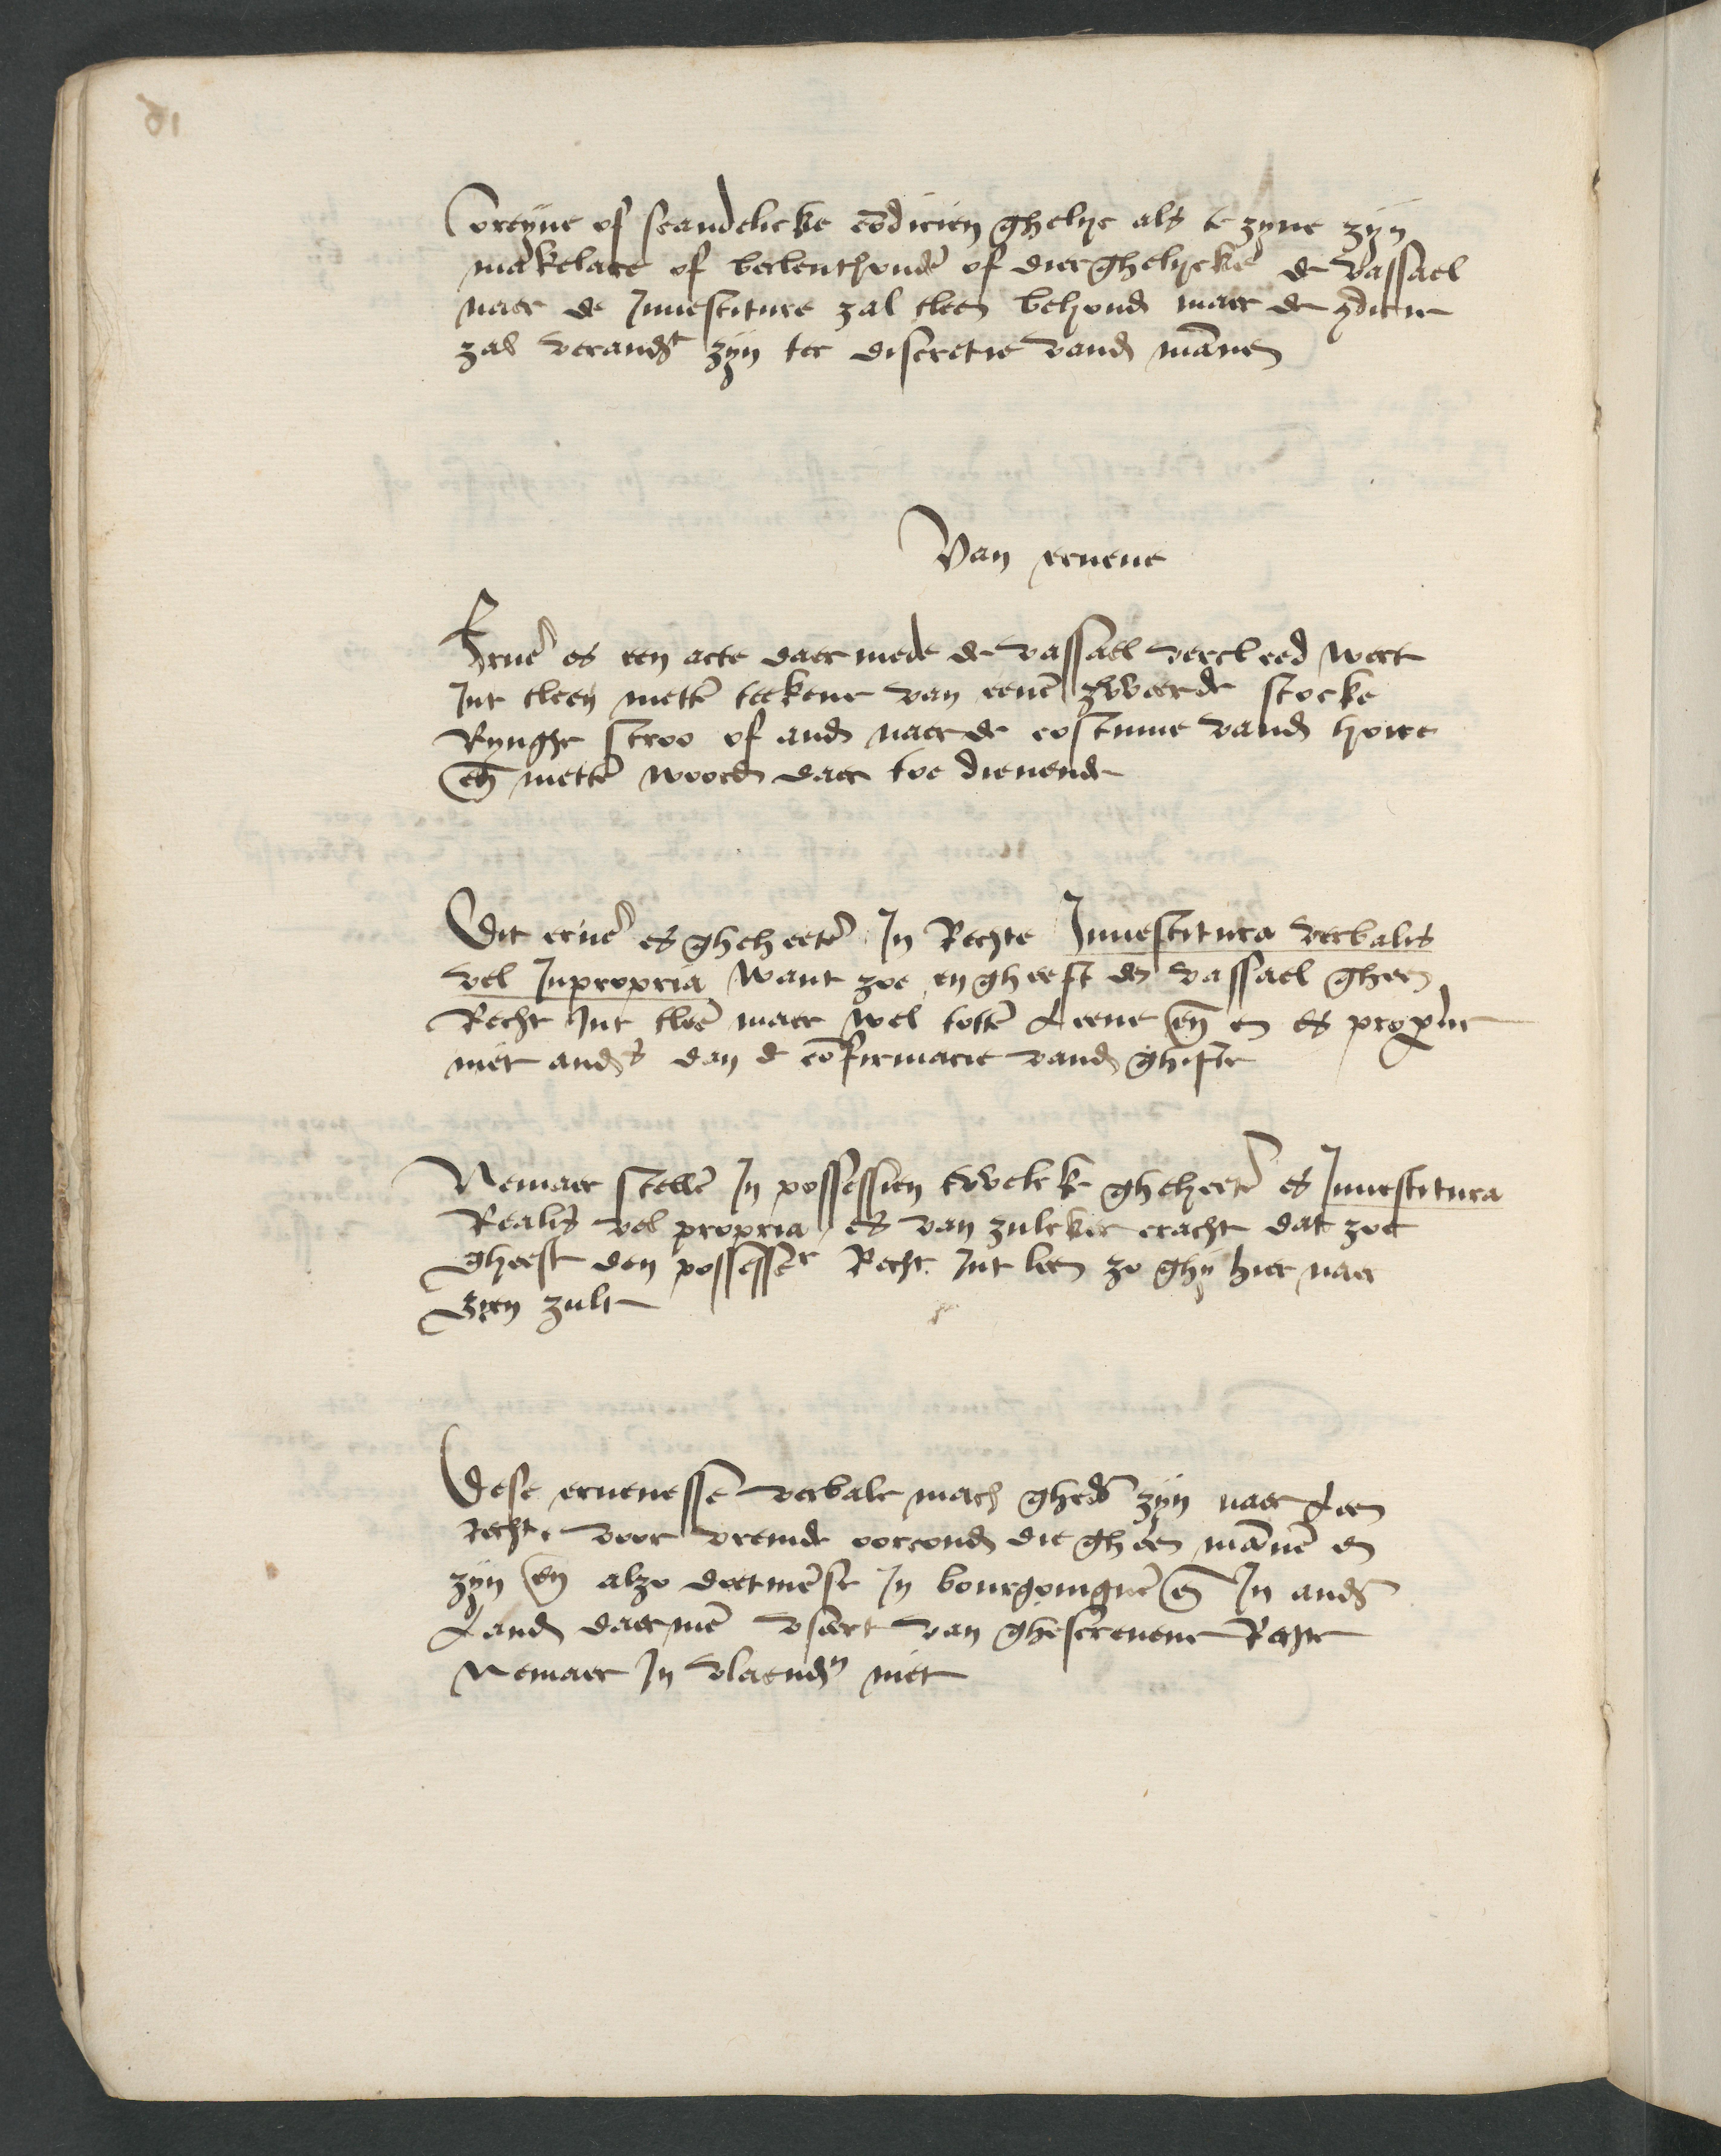 Oreyne of scandelicke cōdicien ghelyc als te zyne zijn
makelare of berlenthoudē of dierghelycke de vassael
naer de Inuestiture zal tleen behoudē maer de 9dicie
zal verandt zijn ter discretie vandē mānen
Van eruene
Eruē es een acte daer mede de vassael vercleed wert
Int tleen mettē teekene van eenē zweerde stocke
Rynghe stroo of andē naer de costume vandē hove
eñ mettē woordē daer toe dienende
Dit eruē es gheheetē In Rechte Inuestitura verbalis
vel Inpropria want zoe en gheeft dē vassael gheen
Recht Int tleē maer wel tottē Leene eñ en es propre
niet andrs dan de cōfirmacie vandē ghifte
Nemaer stellē In possessien twelcke gheheetē es Inuestitura
Realis vel propria es van zulcker cracht dat zoe
Gheeft den possesser Recht Int leen zo ghij hier naer
Zien zult
Dese eruenesse verbale mach ghedē zijn naer Leen
recht voor vremde oorcondē die gheen mānē en
zijn eñ alzo doetmēse In bourgoingnē eñ In andr
Landē daermē vseert van ghescreuene Rechte
Nemaer In vlaendrn niet